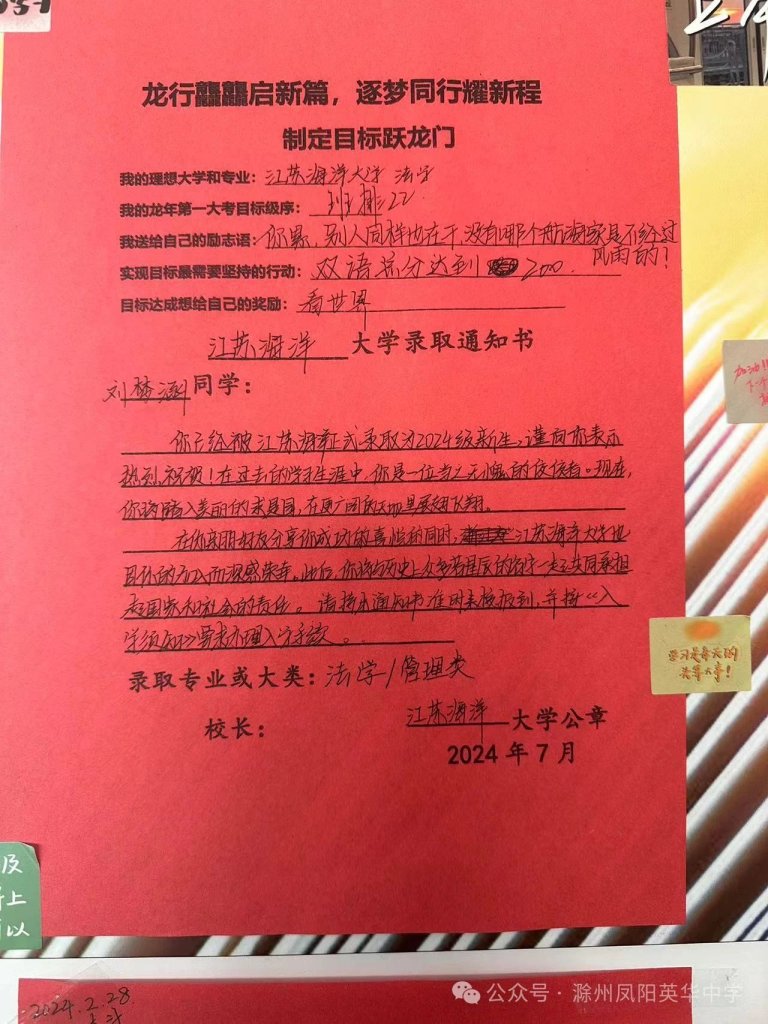 龙行龘龘启新篇，逐梦同行耀新程
制定目标跃龙门
我的理想大学和专业：江苏海洋大学 法学
我的龙年第一大考目标级序：班排22
我送给自己的励志语：你累，别人同样也在干，没有哪个航海家是不经过
风雨的？
实现目标最需要坚持的行动：双语总分达到200.
目标达成想给自己的奖励：看世界
江苏海洋 大学录取通知书
刘梦涵同学：
你已经被江苏海洋正式录取为2024级新生，谨向你表示
热烈祝贺！在过去的学习生涯中，你是一位当之无愧的佼佼者。现在，
你将踏入美丽的校园，在更广阔的天地里展翅飞翔。
在你亲朋好友分享你成功的喜悦的同时，江苏海洋大学也
因你的加入而深感荣幸。此后，你将与历史上众多若星辰的名字一起共同承担
起国家和社会的责任。请持本通知书准时来校报到，并按《入
学须知》要求办理入学手续。
录取专业或大类：法学/管理类
校长：
江苏海洋 大学公章
2024 年 7 月
加油!!
下一个
学习是每天的
头等大事！
及
上
以
2024.2.28
公众号·滁州凤阳英华中学